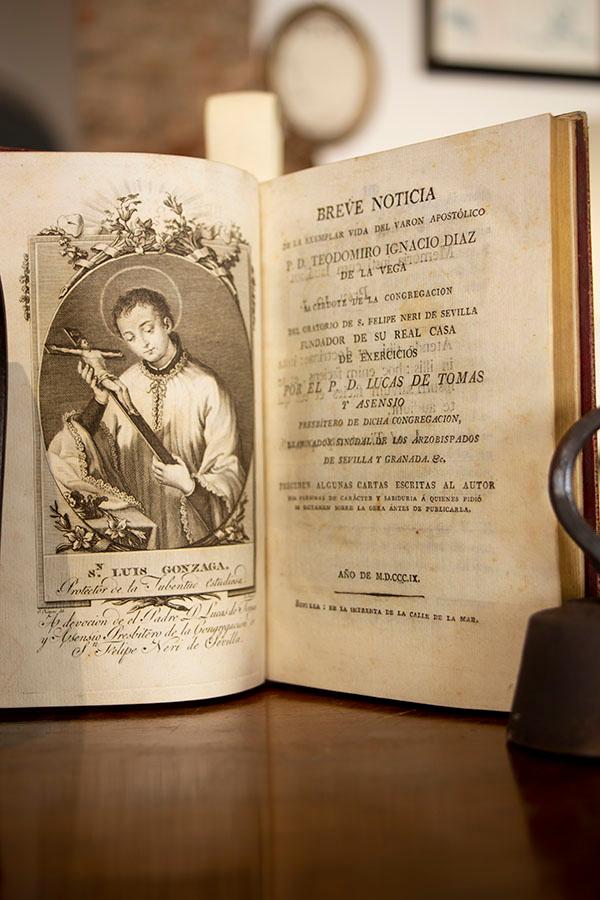 S.N LUIS GONZAGA,
Protector de la Jubentud estudiosa
A devocion de el Padre D. Lucas de Tomas
y Asensio, Presbitero de la Congregacion d
Sn. Felipe Neri de Sevilla.
BREVE NOTICIA
DE LA EXEMPLAR VIDA DEL VARON APOSTÓLICO
P. D. TEODOMIRO IGNACIO DIAZ
DE LA VEGA
SACERDOTE DE LA CONGREGACION
DEL ORATORIO DE S. FELIPE NERI DE SEVILLA
FUNDADOR DE SU REAL CASA
DE EXERCICIOS
POR EL P. D. LUCAS DE TOMAS
Y ASENSIO
PRESBÍTERO DE DICHA CONGREGACION,
EXAMINADOR SINODAL DE LOS ARZOBISPADOS
DE SEVILLA Y GRANADA. &c.
PRECEDEN ALGUNAS CARTAS ESCRITAS AL AUTOR
POR PERSONAS DE CARÁCTER Y SABIDURIA Á QUIENES PIDIÓ
SU DICTAMEN SOBRE LA OBRA ANTES DE PUBLICARLA.
AÑO DE M.D.CCC.IX.
SEVILLA : EN LA IMPRENTA DE LA CALLE DE LA MAR.